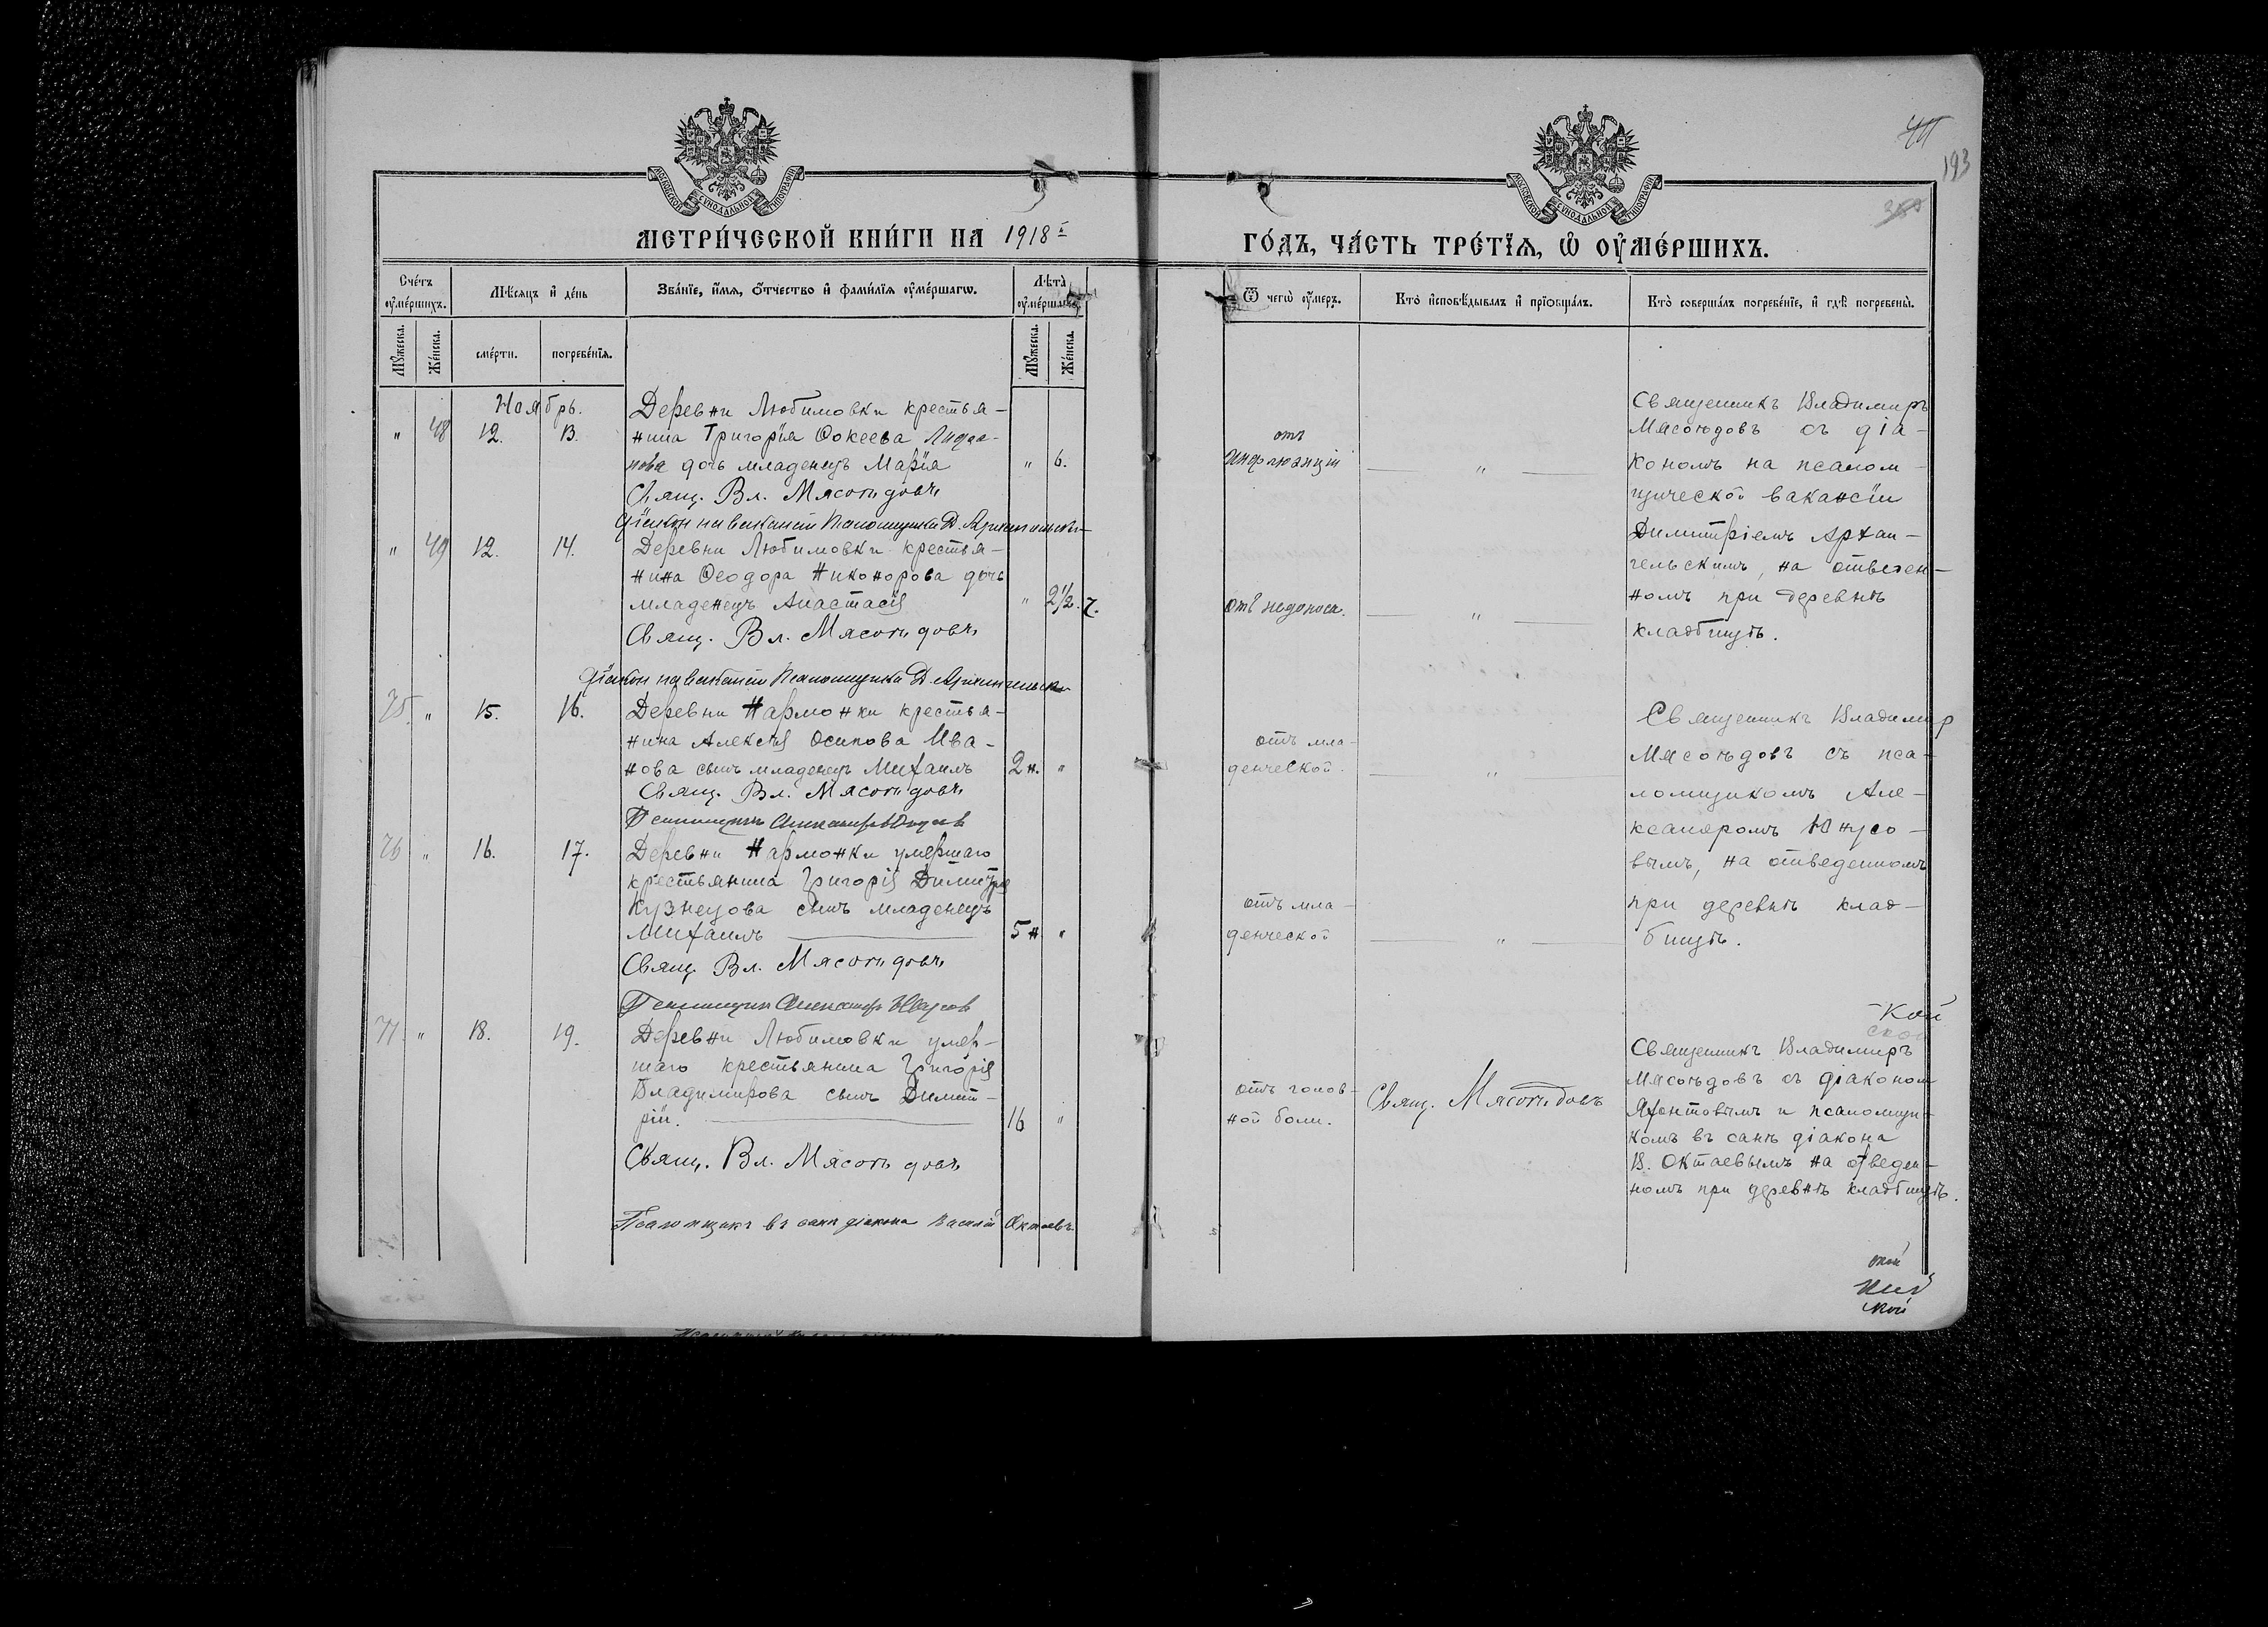 193
МОСКОВСКОЙ СѴНОДАЛЬНОЙ ТИПОГРАФІИ
МОСКОВСКОЙ СѴНОДАЛЬНОЙ ТИПОГРАФІИ
МЕТРИ́ЧЕСКОЙ КНИ́ГИ НА 1918 г.
ГО́ДЪ, ЧА́СТЬ ТРЕ́ТЇѦ, Ѡ ОУМЕ́РШИХЪ.
Сче́тъ оуме́ршихъ.
Мѣ́сѧцъ и де́нь
Зва́нїе, и́мѧ, о́тчество и фами́лїѧ оуме́ршагѡ.
Лѣта̀ оуме́ршагѡ.
Ѿ чегѡ̀ оу́меръ.
Кто̀ исповѣ́дывалъ и прїѡбща́лъ.
Кто̀ соверша́лъ погребе́нїе, и гдѣ̀ погребены̀.
Мꙋ́жеска. Же́нска. сме́рти. погребе́нїѧ. Мꙋ́жеска. Же́нска.
Ноябрь.
" 48 12. 13. Деревни Любимовки крестья-
нина Григорія Ѳокеева
дочь младенецъ Марія " 6.
Свящ. Вл. Мясоѣдовъ
Діаконъ на вакансіи Псаломщика Д. Архангельскій
отъ
инфлюэнціи "
Священникъ Владимиръ
Мясоѣдовъ съ діа-
кономъ на псалом-
щической вакансіи
Димитріемъ Архан-
гельскимъ, на отведен-
номъ при деревнѣ
кладбищѣ.
" 49 12. 14. Деревни Любимовки крестья-
нина Ѳеодора Никонорова дочь
младенецъ Анастасія " 2 1/2 ч.
Свящ. Вл. Мясоѣдовъ
Діаконъ на вакансіи Псаломщика Д. Архангельскій
отъ недоноса. "
75. " 15. 16. Деревни Нармонки крестья-
нина Алексѣя Осипова Ива-
нова сынъ младенецъ Михаилъ 2 н. "
Свящ. Вл. Мясоѣдовъ
Псаломщикъ Александръ Юнусовъ
отъ мла-
денческой. "
Священникъ Владимир
Мясоѣдовъ съ пса-
ломщикомъ Але-
ксандромъ Юнусо-
вымъ, на отведенномъ
при деревнѣ клад-
бищѣ.
76 " 16. 17. Деревни Нармонки умершаго
крестьянина Григорія Димитрія
Кузнецова сынъ младенецъ
Михаилъ 5 н "
Свящ. Вл. Мясоѣдовъ
Псаломщикъ Александръ Юнусов
отъ мла-
денческой "
кой
ско
77. " 18. 19. Деревни Любимовки умер-
шаго крестьянина Григорія
Владимирова сынъ Димит-
рій. 16 "
Свящ. Вл. Мясоѣдовъ
Псаломщикъ въ санѣ діакона Василій Октаевъ.
отъ голов-
ной боли.
Свящ. Мясоѣдовъ
Священникъ Владимиръ
Мясоѣдовъ съ діакономъ
Яхонтовымъ и псаломщи-
комъ въ санѣ діакона
В. Октаевымъ на отведен-
номъ при деревнѣ кладбищѣ.
кой